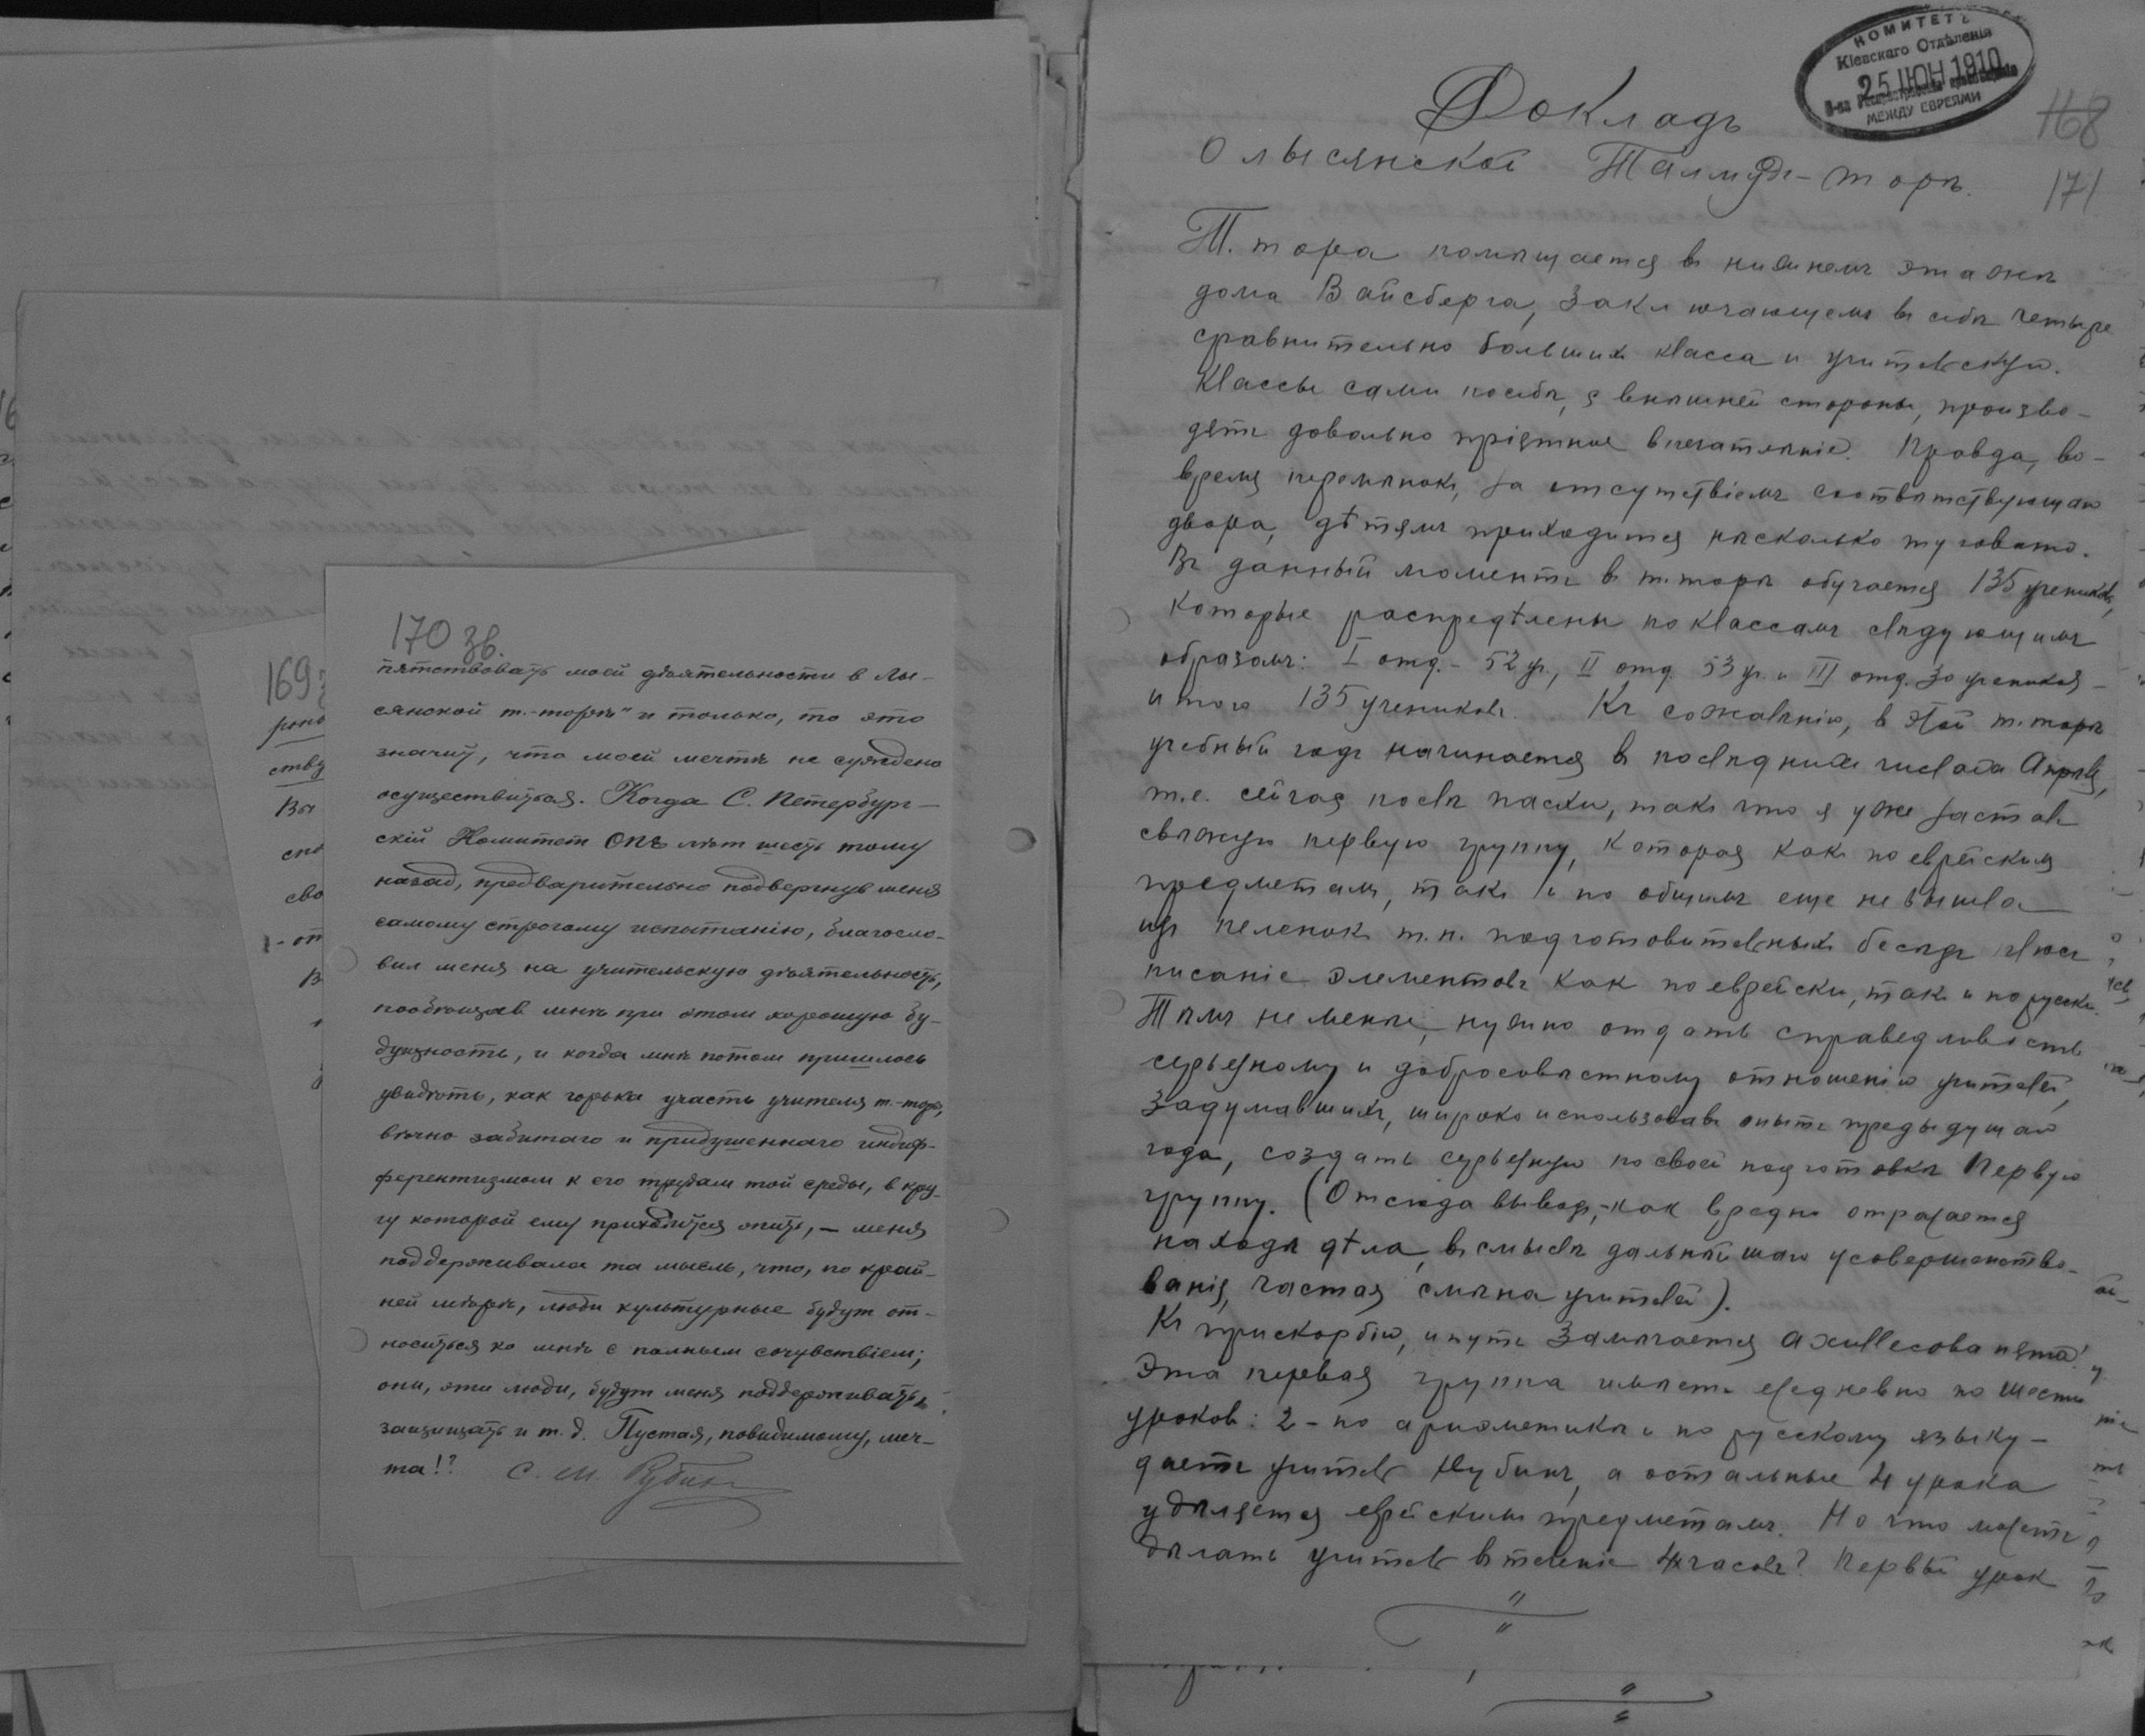 170 зв.
пятствовать моей дѣятельности в Лы-
сянской т.-торѣ" и только, то это
значит, что моей мечтѣ не суждено
осуществиться. Когда С. Петербург-
скій Комитет ОПЕ лѣт шесть тому
назад, предварительно подвергнув меня
самому строгому испытанію, благосло-
вил меня на учительскую дѣятельность,
пообѣщав мнѣ при этом хорошую бу-
дущность, и когда мнѣ потом пришлось
увидѣть, как горька участь учителя т.-торы,
вѣчно забитаго и придушеннаго индиф-
ферентизмом к его трудам той среды, в кру-
гу которой ему приходится жить, – меня
поддерживала та мысль, что, по край-
ней мѣрѣ, люди культурные будут от-
носиться ко мнѣ с полным сочувствіем;
они, эти люди, будут меня поддерживать,
защищать и т.д. Пустая, повидимому, меч-
та!? С. М. Рубин
169
ству
Вы
сво
КОМИТЕТЪ
Кіевскаго Отдѣленія
25 ІЮН 1910
О-ва Распространенія просвѣщенія
МЕЖДУ ЕВРЕЯМИ
168
171
Докладъ
О лысянской Талмудъ-торѣ.
Т. тора помѣщается въ нижнемъ этажѣ
дома Вайсберга, заключающемъ въ себѣ четыре
сравнительно большихъ класса и учительскую.
Классы сами по себѣ, съ внѣшней стороны, произво-
дятъ довольно пріятное впечатлѣніе. Правда, во-
время перемѣнокъ, за отсутствіемъ соотвѣтствующаго
двора, дѣтямъ приходится нѣсколько туговато.
Въ данный моментъ въ т. торѣ обучается 135 учениковъ,
которые распредѣлены по классамъ слѣдующимъ
образомъ: I отд. - 52 уч., II отд. 53 уч. и III отд. 30 учениковъ -
итого 135 учениковъ. Къ сожалѣнію, въ этой т. торѣ
учебный годъ начинается въ послѣднихъ числахъ Апрѣля,
т.е. сейчасъ послѣ пасхи, такъ что я уже засталъ
свѣжую первую группу, которая какъ по еврейскимъ
предметамъ, такъ и по общимъ еще не вышла
изъ пеленокъ т.н. подготовительныхъ бесѣдъ плюсъ
писаніе элементовъ какъ по еврейски, такъ и по русски.
Тѣмъ не менѣе, нужно отдать справедливость
серьезному и добросовѣстному отношенію учителей,
задумавшихъ, широко использовавъ опытъ предыдущаго
года, создать серьезную по своей подготовкѣ первую
группу. (Отсюда выводъ,- какъ вредно отражается
на ходѣ дѣла, въ смыслѣ дальнѣйшаго усовершенство-
ванія, частая смѣна учителей).
Къ прискорбію, и тутъ замѣчается ахиллесова пята!
Эта первая группа имѣетъ ежедневно по шести
уроковъ: 2 - по ариѳметикѣ и по русскому языку -
даетъ учитель Рубинъ, а остальные 4 урока
удѣляется еврейскимъ предметамъ. Но что можетъ
дѣлать учитель въ теченіе 4 часовъ? Первый урок